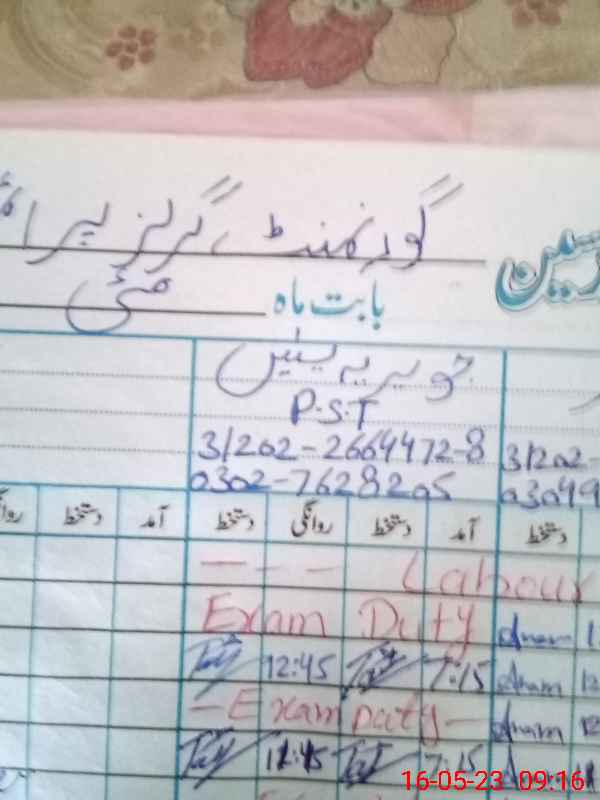 گورنمنٹ گرلز پرا
بابت ماہ مئی
جویریہ یٰسین
P.S.T
31202-2664472-8 31202-
0302-7628205 03049
دستخط آمد دستخط روانگی دستخط آمد دستخط
--- Labour
Exam Duty
12:45 7:15
-Exam Duty-
11:45 7:15
16-05-23 09:16